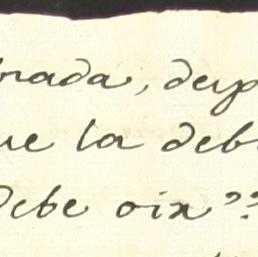 nada, desp
ue la deb
Debe oir??